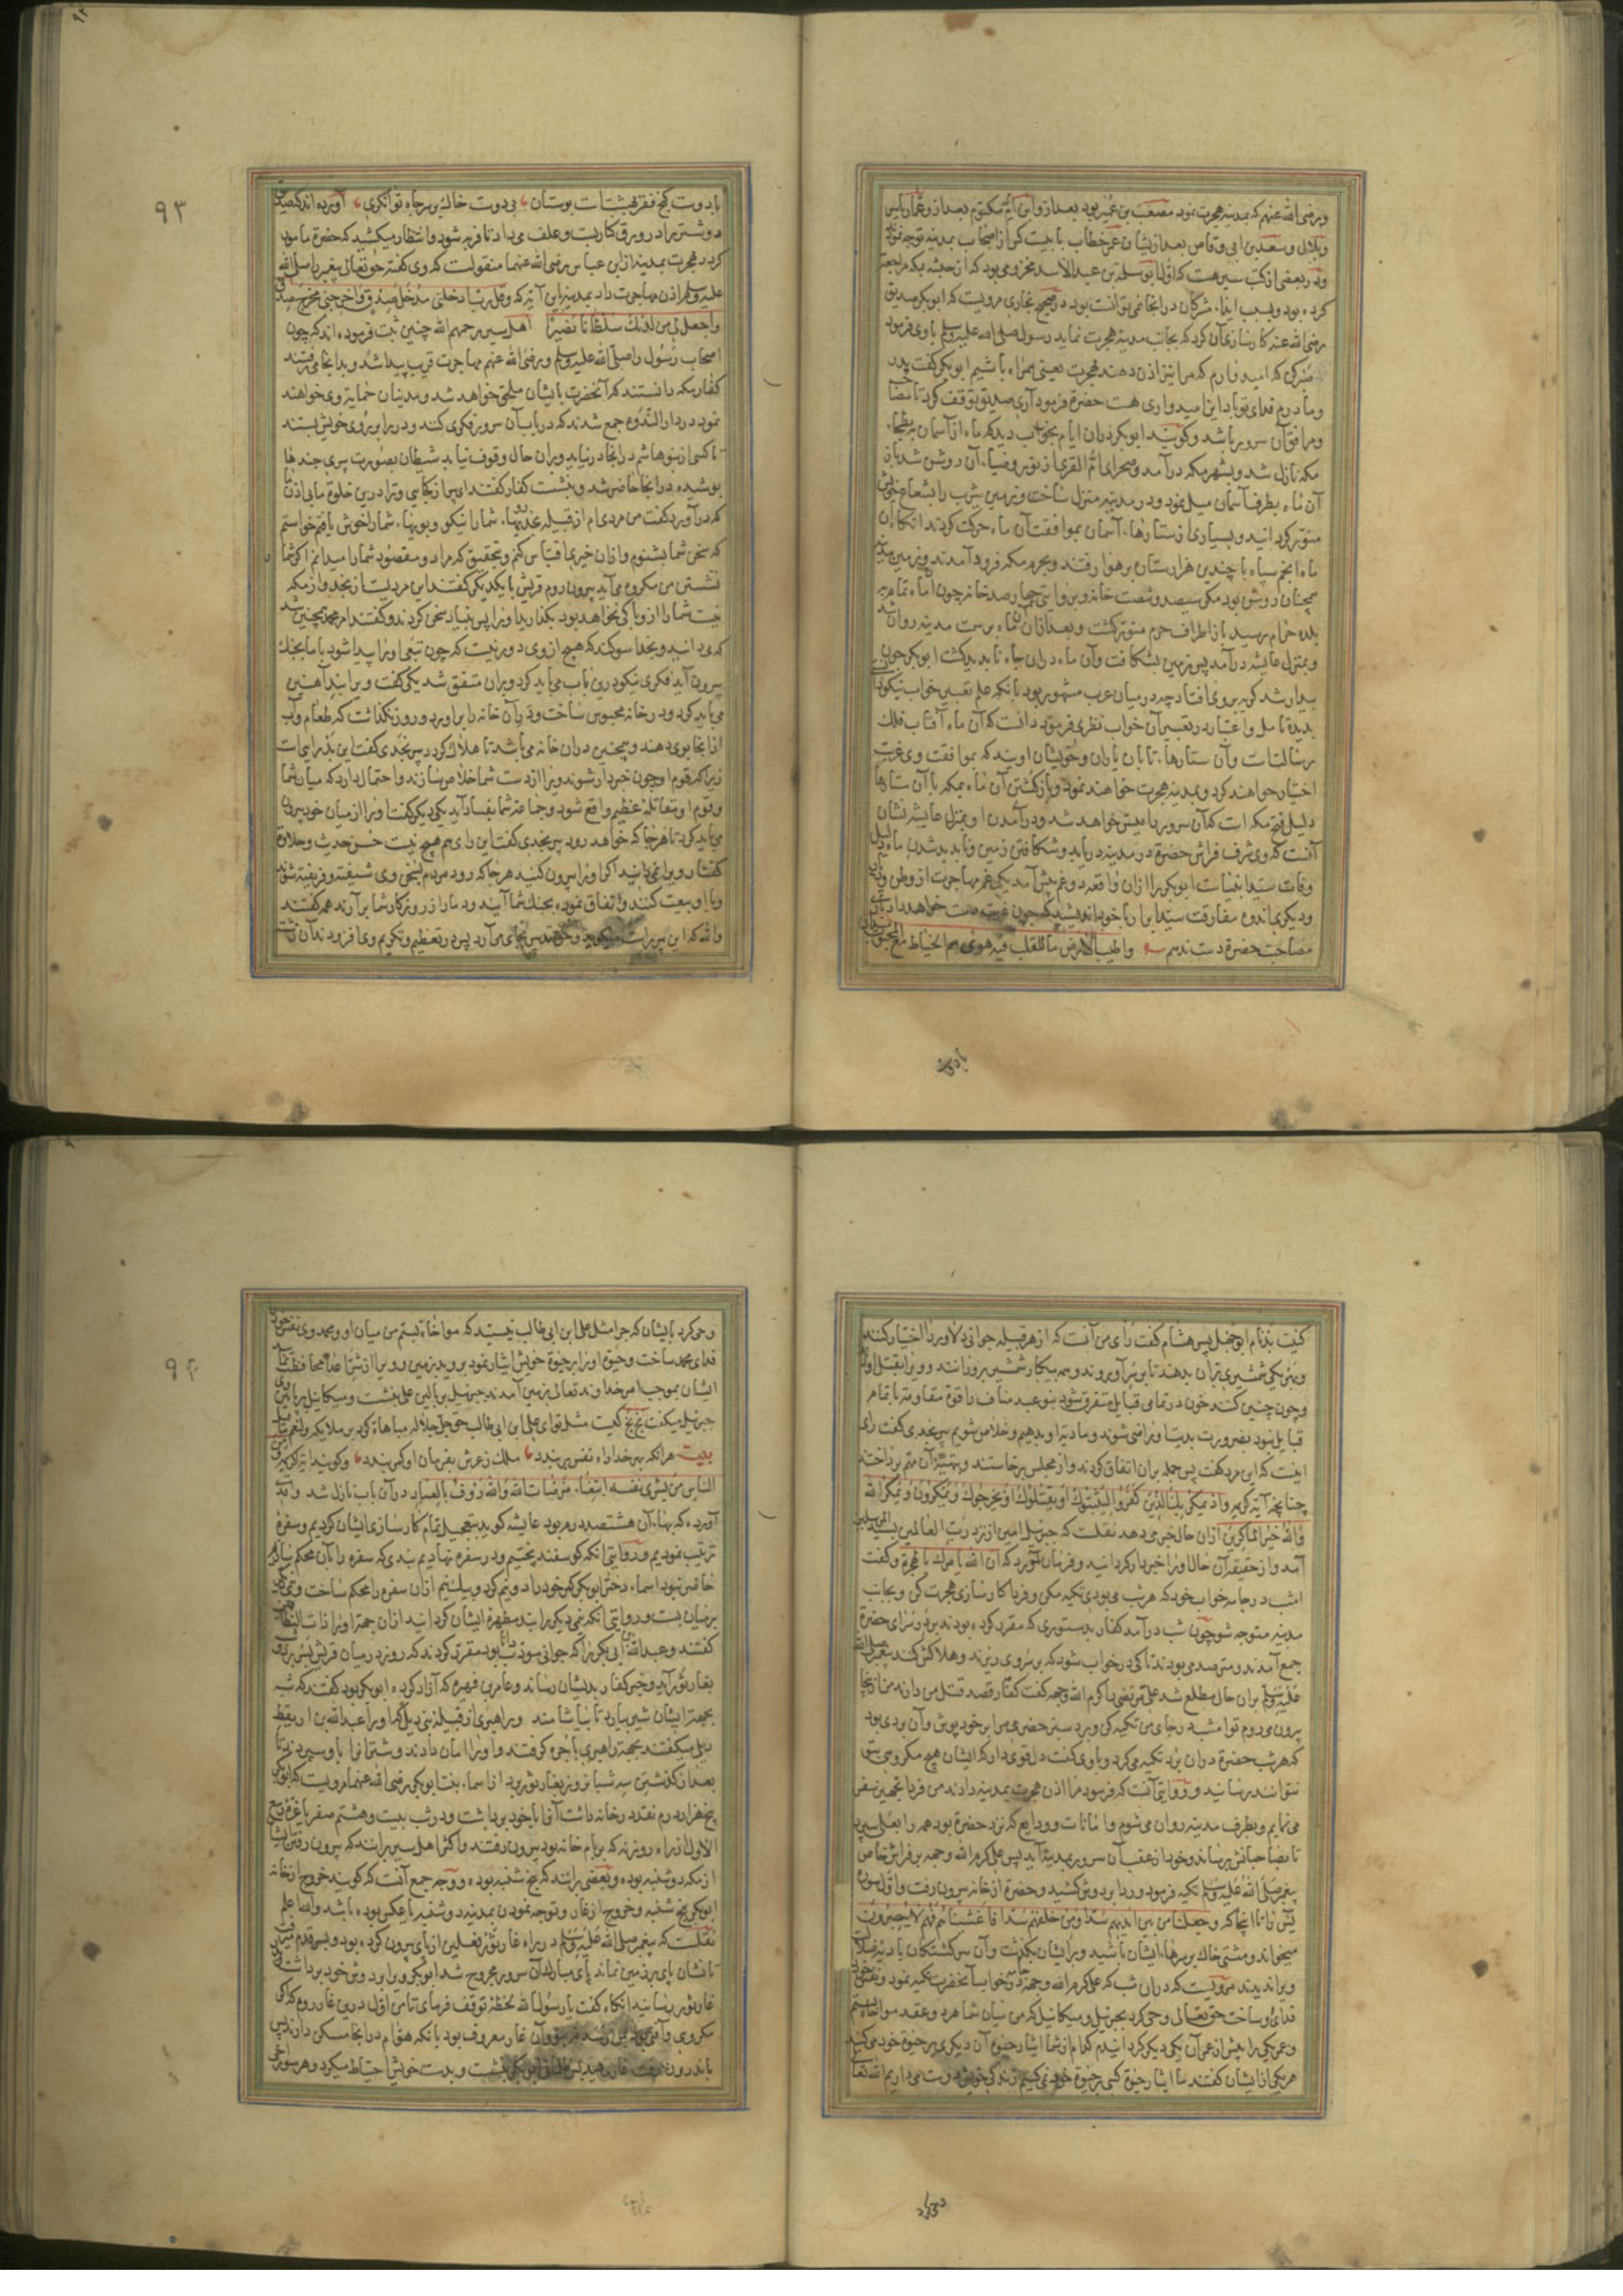 ورضی الله عنهم که بمدینه هجرت نمود مصعب بن عمیر بود بعد ازو ابن ام مکتوم بعد ازو عمار یاسر
وبلال وسعد بن ابی وقاص بعد ازیشان عمر خطاب با بیست کس از اصحاب بمدینه توجه نمود
ودر بعضی از کتب سیر هست که اول ابو سلمه بن عبد الاسد مخزومی بود که از حبشه بمکه مراجعت
کرده بود وبسبب ایذاء مشرکان در انجا نمی توانست بود در صحیح بخاری مرویست که ابوبکر صدیق
رضی الله عنه کارسازی آن کرد که بجانب مدینه هجرت نماید رسول صلی الله علیه وسلم با وی فرمود
که امید وارم که مرا نیز اذن دهند بهجرت یعنی همراه باشیم ابوبکر گفت پدر
ومادرم فدای تو باد این امیدواری هست حضرة فرمود آری صدیق توقف کرد تا
ومرافق آن سرور باشد وگویند ابوبکر دران ایام بخواب دید که ماه از آسمان ببطحاء
مکه نازل شد وبشهر مکه درآمد وصحرای ام القری از نور وضیاء آن روشن شد باز
آن ماه بطرف آسمان میل نمود ودر مدینه منزل ساخت وزمین یثرب را بشعاع خویش
منور گردانید وبسیاری از ستارها آسمان بموافقت آن ماه حرکت کردند انکاه آن
ماه انجم سپاه با چندین هزار ستان بر هوا رفتند وبحرم مکه فرود آمدند وزمین مدینه
همچنان روشن بود مکر سیصد وشصت خانه وبروایتی چهارصد خانه چون آن ماه تمام
بلده حرام رسید باز اطراف حرم منور گشت وبعد ازان آن ماه بر سمت مدینه روان شد
وبمنزل عایشه درآمد پس زمین بشکافت وآن ماه دران جاه ناپدید گشت ابوبکر چون
بیدار شد گریه بروی افتاد چه در میان عرب مشهور بود بانکه علم تعبیر خواب نیکو داند
بدیده تامل واعتبار در تعبیر آن خواب نظری فرمود دانست که آن ماه آفتاب فلک
رسالتست وآن ستارها تابان یاران وخویشان اویند که بموافقت وی غربت
اختیار خواهند کرد وبمدینه هجرت خواهند نمود وبازگشتن آن ماه بمکه با آن ستارها
دلیل فتح مکه است که آن سرور را میسر خواهد شد ودرآمدن او بمنزل عایشه نشان
آنست که وی شرف فراش حضرة در مدینه دریابد وشکافتن زمین وناپدید شدن ماه دلیل
وفات سید کائنات است ابوبکر را ازان واقعه دو غم پیش آمد یکی غم مهاجرت از وطن
ودیگر اندوه مفارقت سید ابرار با خود اندیشید که چون غربت دست خواهد داد
مصاحبت حضرة دست ندهم واطیب الارض ما للقلب فیه هوی سم الخیاط مع المحبوب
با دوست کنج فقر بهشتست وبوستان بی دوست خاک بر سر جاه وتوانکری آورده اند که صدیق
دو شتر برادر ورق کاربست وعلف می داد تا فربه شود وانتظار میکشید که حضرة مامور
کردد بهجرت بمدینه از ابن عباس رضی الله عنهما منقولست که وی گفته حق تعالی پیغمبر را صلی الله
علیه وسلم اذن مهاجرت داد بمدینه این آیه که وقل رب ادخلنی مدخل صدق واخرجنی مخرج صدق
واجعل لی من لدنک سلطانا نصیرا اهل سیر رحمهم الله چنین ثبت فرموده اند که چون
اصحاب رسول را صلی الله علیه وسلم ورضی الله عنهم مهاجرت قریب پیدا شد وبدانجا می رفتند
کفار مکه دانستند که آنحضرت با یشان ملحق خواهد شد ومدنیان حمایة وی خواهند
نمود در دار الندوه جمع شدند که در باب آن سرور فکری کنند ودر سرا بروی خویش بستند
تا کسی از بنو هاشم در انجا درنیاید وبران حال وقوف نیابد شیطان بصورت پیری
پوشیده در انجا حاضر شد وبنشست کفار گفتند ای پیر از کجایی وترا درین خلوة ما بی اذن
که درآورد گفت من مردی ام از قبیله نجد شما را نیکو وبویها شما را خوش یافتم خواستم
که سخن شما بشنوم وازان خیری اقتباس کنم وتحقیق که مراد ومقصود شما را میدانم اگر شما
نشستن من مکروه می آید بیرون روم قریش با یکدیگر گفتند این مردیست از نجد واز مکه
نیست شما را ازو باکی نخواهد بود بگذارید او را پس بنیاد سخن کردند وگفتند امر محمد چنین شد
که می دانید وبخدا سوگند که هیچ از وی دور نیست که چون تبعی او را پیدا شود با ما بجنک
بیرون آید فکری نیکو درین باب می باید کرد وبران متفق شد یکی گفت ویرا بند آهنین
می باید کرد ودر خانه محبوس ساخت ودر آن خانه را برآورد وروزنی گذاشت که طعام وآب
ازانجا بوی دهند وهمچنین دران خانه می باشد تا هلاک گردد پیر نجدی گفت این بد رایی است
زیرا که قوم او چون خبردار شوند ویرا از دست شما خلاص سازند واحتمال دارد که میان شما
وقوم او مقاتله عظیم واقع شود وجماعت شما بفساد آید یکی دیگر گفت او را از میان خود بیرون
می باید کرد تا هرجا که خواهد رود پیر نجدی گفت این رای هم هیچ نیست حسن حدیث وحلاوة
گفتار ویرا نمی دانید اگر او را بیرون کنید هرجا که رود مردم بسخن وی شیفته وفریفته شوند
وبا او بیعت کنند واتفاق نموده بجنک شما آیند ودمار از روزگار شما برآرند همه گفتند
والله که این پیر راست میگوید پس در تعظیم وتکریم وی افزودند آن
گفت بدنام ابوجهل بن هشام گفت رای من آنست که از هر قبیله جوانی دلاور را اختیار کنند
وبهر یکی شمشیری بران بدهند تا بر سر او روند وهمه بیکبار شمشیر برو رانند وویرا بقتل آورند
وچون چنین کنند خون در تمامی قبایل متفرق شود بنو عبد مناف را قوة مقاومة با تمام
قبایل نبود بضرورت بدیت او راضی شوند وما دیة او بدهیم وخلاص شویم پیر نجدی گفت رای
اینست که این مرد گفت پس جمله بران اتفاق کردند واز مجلس برخاستند وبتهیئه آن مهم پرداختند
چنانچه آیه کریمه واذ یمکر بک الذین کفروا لیثبتوک او یقتلوک او یخرجوک ویمکرون ویمکر الله
والله خیر الماکرین ازان حال خبر می دهد نقلست که جبرئیل امین از نزد رب العالمین بسید المرسلین
آمد واز حقیقة آن حال او را خبردار گردانید وفرمان آورد که ان الله یامرک بالهجرة وگفت
امشب در جامه خواب خود که هر شب می بودی تکیه مکن وفردا کارسازی هجرت کن وبجانب
مدینه متوجه شو چون شب درآمد کفار بدستوری که مقرر کرده بودند بر در سرای حضرة
جمع آمدند ومترصد می بودند تا کی در خواب شود که بر سر وی ریزند وهلاکش کنند پیغمبر صلی الله
علیه وسلم بران حال مطلع شد علی مرتضی را کرم الله وجهه گفت کفار قصد قتل من دارند من از انجا
بیرون می روم تو امشب در جای من تکیه کن وبرد سبز حضرمی مرا بر خود پوش وآن بردی بود
که هر شب حضرة دران برد تکیه می کرد وبا وی گفت دل قوی دار که ایشان هیچ مکروهی بتو
نتوانند رسانید ودر روایتی آنست که فرمود مرا اذن هجرت بمدینه دادند من فردا تجهیز سفر
می نمایم وبطرف مدینه روان می شوم وامانات وودایع که نزد حضرة بود همه را بعلی سپرد
تا بصاحبانش برساند وخود از عقب آن سرور بمدینه آید پس علی کرم الله وجهه بر فراش خاص
پیغمبر صلی الله علیه وسلم تکیه فرمود وردا بر دوش کشید وحضرة از خانه بیرون رفت واول سوره
یس را تا انجا که وجعلنا من بین ایدیهم سدا ومن خلفهم سدا فاغشیناهم فهم لا یبصرون
میخواند ومشتی خاک بر سرهاء ایشان پاشید وبر ایشان بگذشت وآن سرگشتگان بادیه ضلالت
ویرا ندیدند مرویست که دران شب که علی کرم الله وجهه در خواب آنحضرت تکیه نمود ونفس خود
فدای وی ساخت حق تعالی وحی کرد بجبرئیل ومیکائیل که من میان شما هر دو عقد مواخات بستم
وعمر یکی را بیش از عمر آن یکی دیگر گردانیدم کدام از شما ایثار حیوة آن دیگری بر حیوة خود می کنید
هر یکی از ایشان گفتند ما ایثار حیوة کسی بر حیوة خود نمی کنیم زندگی خویش دوست می داریم الله تعالی
وحی کرد بایشان که چرا مثل علی ابن ابی طالب نیستید که مواخاة بستم من میان او ومحمد وی نفس خود را
فدای محمد ساخت وحیوة او را بر حیوة خویش ایثار نمود بروید بزمین وویرا از شر اعدا محافظت نمائید
ایشان بموجب امر خداوند تعالی بزمین آمدند جبرئیل بر بالین علی بنشست ومیکائیل بر پایین وی
جبرئیل میگفت بخ بخ کیست مثل تو ای علی ابن ابی طالب حق جل جلاله مباهاة کرد بر ملایکه
بیت هر آنکه بهر خدا راه نفس بربندد ملک ز عرش بفرمان او کمر بندد وگویند آیه کریمه ومن
الناس من یشری نفسه ابتغاء مرضات الله والله رؤوف بالعباد در آن باب نازل شد
آورده که بهاء آن هشتصد درهم بود عایشه گوید بتعجیل تمام کارسازی ایشان کردیم وسفره
ترتیب نمودیم ودر روایتی انکه گوسفند پختیم ودر سفره نهادیم بندی که سفره را بان محکم سازند
حاضر نبود اسماء دختر ابوبکر کمر خود را دو نیم کرد وبیک نیم ازان سفره را محکم ساخت ونیمی دیگر
بر میان بست ودر روایتی انکه نیمی دیگر را بند مطهرة ایشان گردانید ازان جهة او را ذات النطاقین
گفتند وعبد الله بن ابی بکر را که جوانی بود دانا مقرر کردند که روز در میان قریش بسر برد وشب
بغار ثور آید وخبر کفار بدیشان رساند وعامر بن فهیره که آزاد کرده ابوبکر بود گفتند که شب
بجهة ایشان شیر بیارد تا بیاشامند وراهبری از قبیله بنی دیل که او را عبد الله بن اریقط
دیلی میگفتند بجهة راهبری باجره گرفتند واو را امان دادند وشتران را باو سپردند تا
بعد از گذشتن سه شبانروز بغار ثور برد از اسماء بنت ابوبکر رضی الله عنهما مرویست که ابوبکر
پنج هزار درم نقد در خانه داشت آنرا با خود برداشت ودر شب بیست وهشتم صفر یا غره ربیع
الاول از راه روزنه که بر بام خانه بود بیرون رفتند واکثر اهل سیر برانند که بیرون رفتن ایشان
از مکه دوشنبه بوده وبعضی برانند که پنج شنبه بوده ووجه جمع آنست که گویند خروج از خانه
ابوبکر پنج شنبه وخروج از غار وتوجه نمودن بمدینه دوشنبه یا عکس بوده باشد والله اعلم
نقلست که پیغمبر صلی الله علیه وسلم در راه غار ثور نعلین از پای بیرون کرده بود وبسر قدم میرفت
تا نشان پای بر زمین نماند پای مبارک آن سرور مجروح شد ابوبکر ویرا بر دوش خود برداشت
غار ثور رسانید انکاه گفت یا رسول الله لحظه توقف فرمای تا من اول درین غار روم که اگر
مکروهی وآفتی بود بمن رسد وآن غار معروف بود بانکه هوام در انجا مسکن دارند پس
باندرون رفت بنشست وبدست خویش احتیاط میکرد وهر سوراخی
۹۳
۹۴